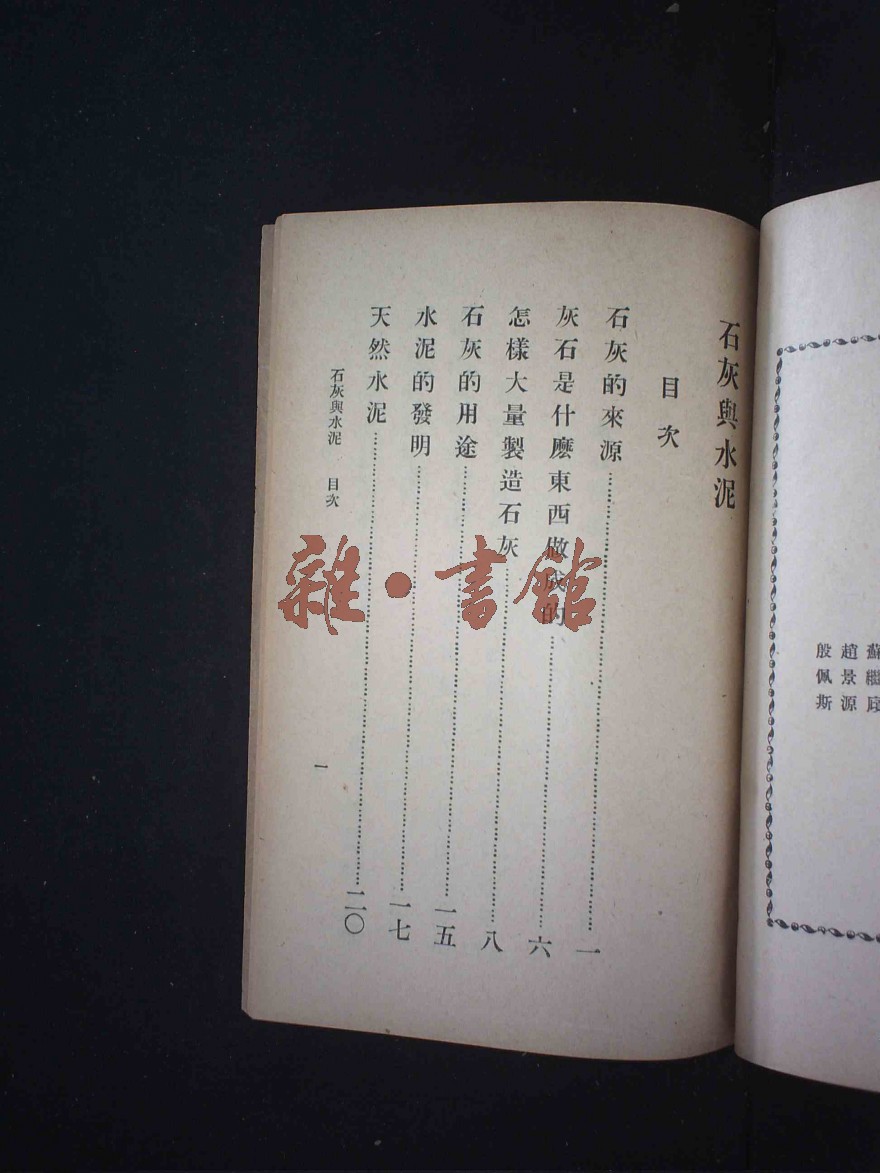 石灰與水泥
目次
石灰的來源……一
灰石是什麼東西做成的……六
怎樣大量製造石灰……八
石灰的用途……一五
水泥的發明……一七
天然水泥……二〇
石灰與水泥 目次
一
趙景源
殷佩斯
雜·書館